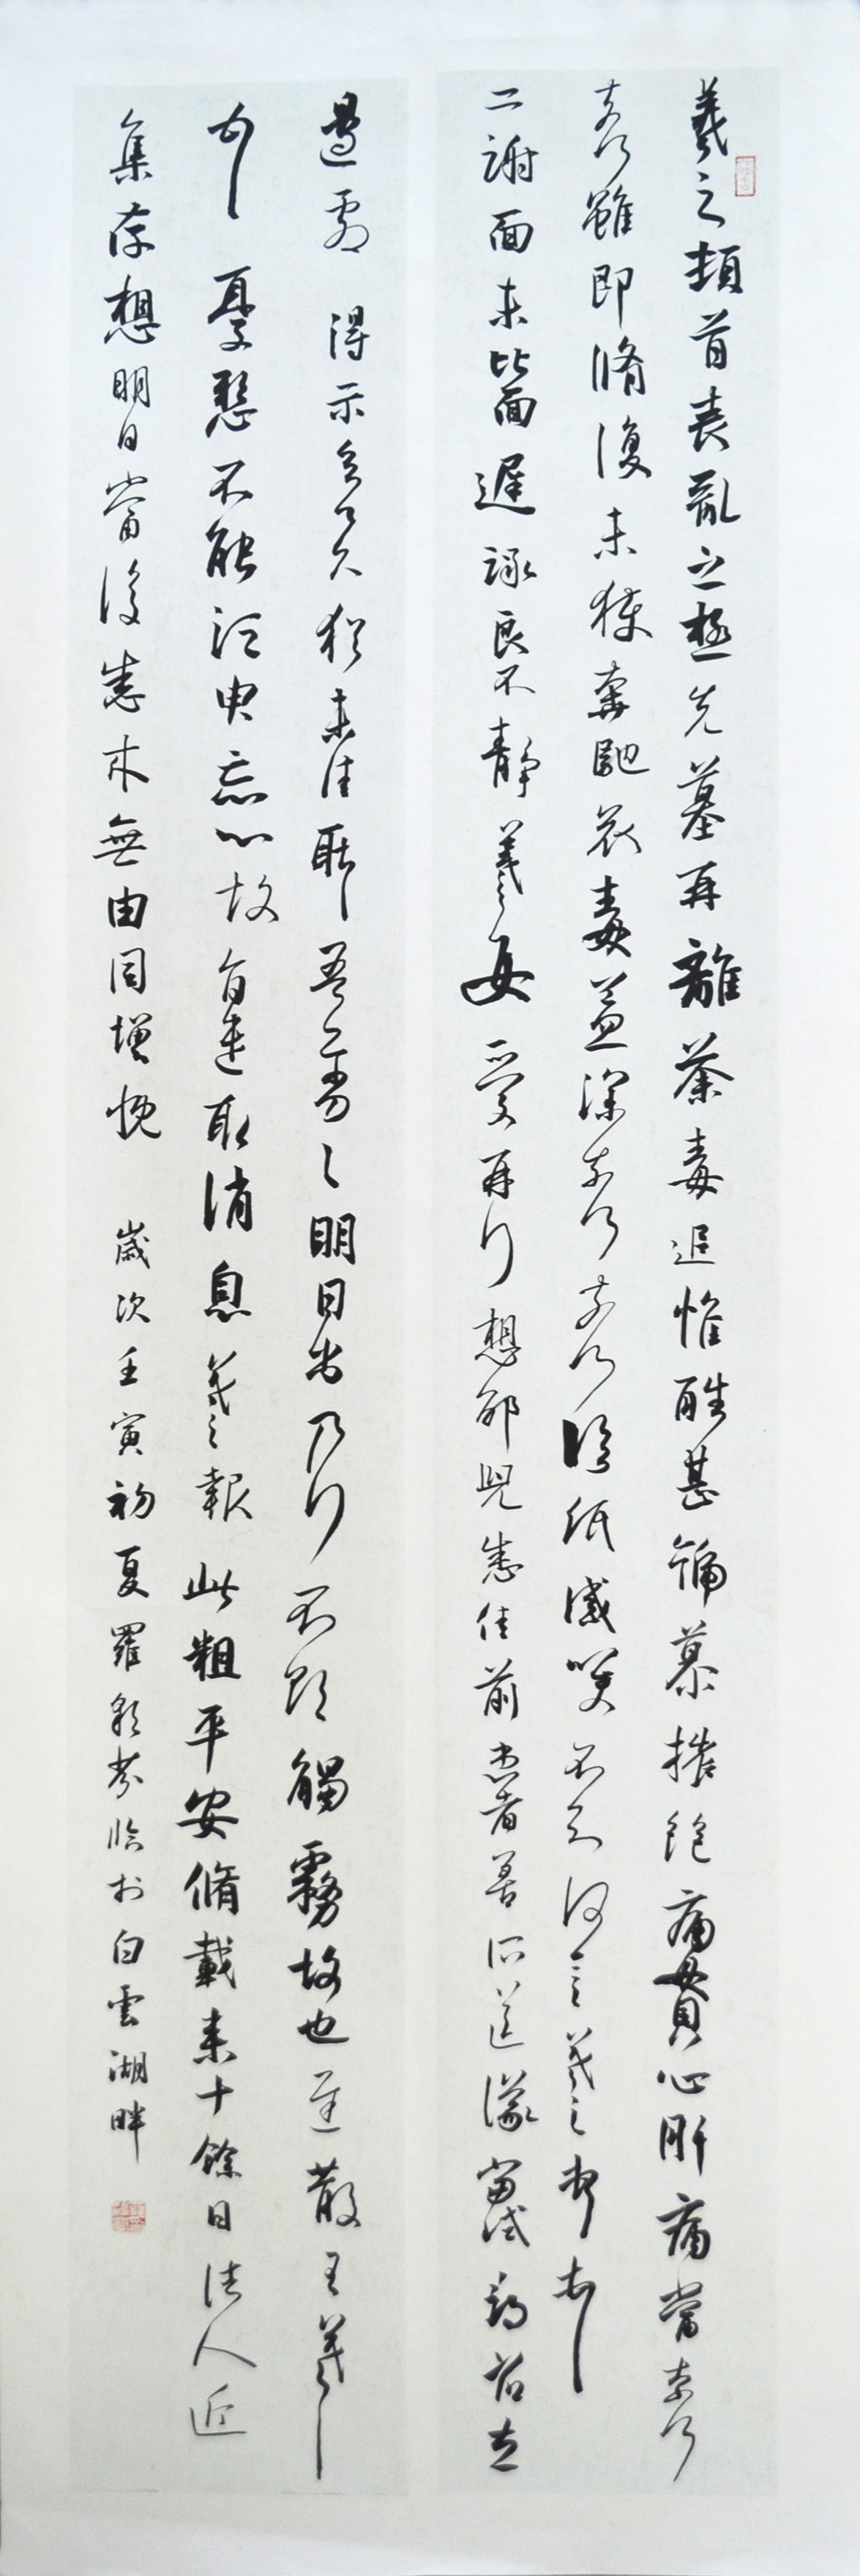 羲之頓首喪亂之極先墓再離荼毒追惟酷甚號慕摧絕痛貫心肝痛當奈何
奈何雖即脩復未獲奔馳哀毒益深奈何奈何臨紙感哽不知何言羲之頓首
二謝面未比面遲詠良不靜羲之女愛再拜想邰兒悉佳前患者善所送議當試尋省左
邊劇 得示知足下猶未佳耿耿吾亦劣劣明日出乃行不欲觸霧故也遲散王羲之
頓首 憂懸不能須臾忘心故旨遣取消息羲之報 此粗平安脩載來十餘日諸人近
集存想明日當復悉來無由同增慨 歲次壬寅初夏羅芬臨於白雲湖畔